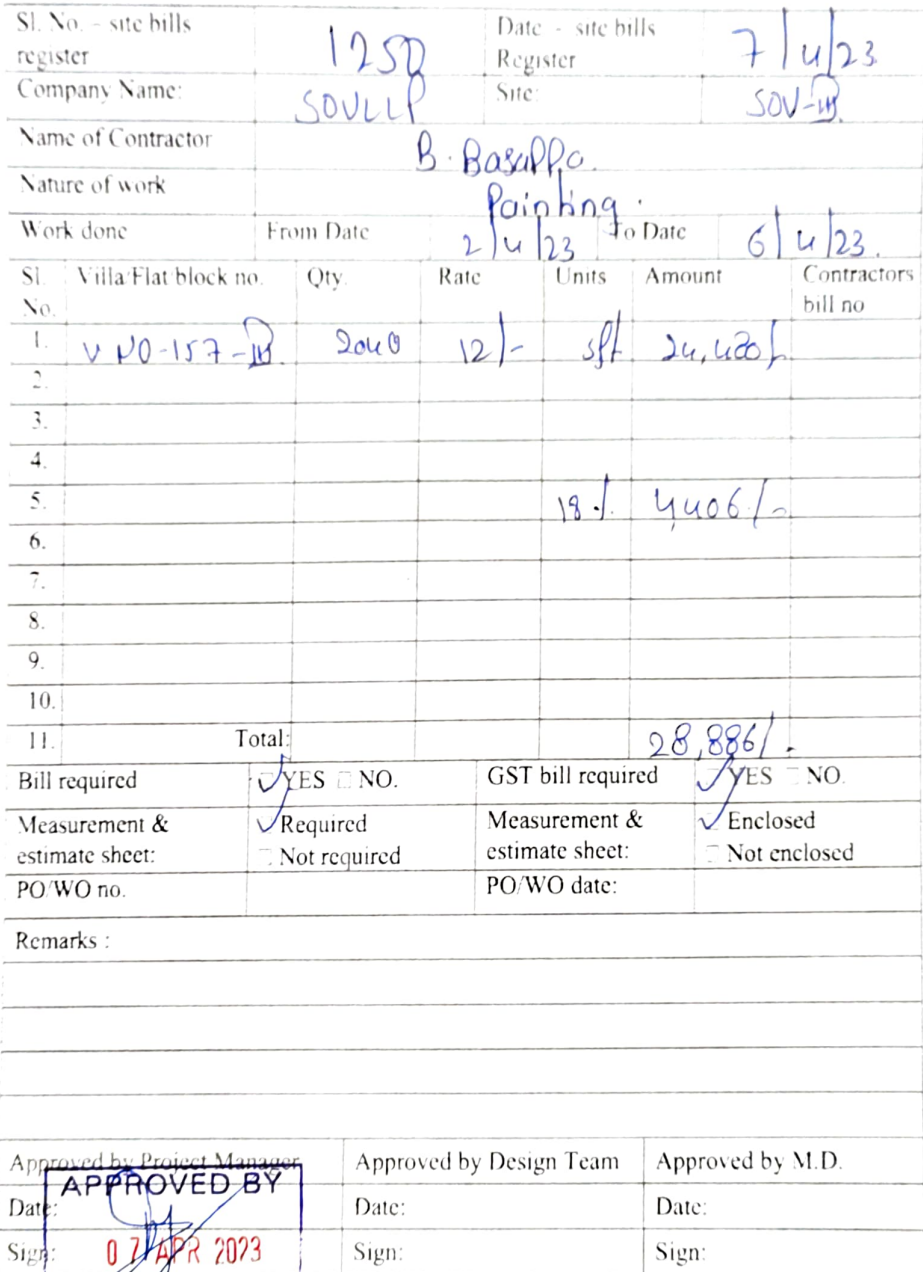 Sl. No. - site bills register 1250 Date - site bills Register 7/4/23
Company Name: SOVLLP Site: SOV-III
Name of Contractor B. Basappa.
Nature of work Painting.
Work done From Date 2/4/23 To Date 6/4/23.
Sl. No. Villa/Flat block no. Qty. Rate Units Amount Contractors bill no
1. V NO-157-III 2040 12/- sft 24,480/-
2.
3.
4.
5. 18% 4406/-
6.
7.
8.
9.
10.
11. Total: 28,886/-
Bill required YES NO. GST bill required YES NO.
Measurement & estimate sheet: Required Measurement & estimate sheet: Enclosed
Not required Not enclosed
PO/WO no. PO/WO date:
Remarks :
Approved by Project Manager Approved by Design Team Approved by M.D.
APPROVED BY
Date: Date: Date:
Sign: 07 APR 2023 Sign: Sign: